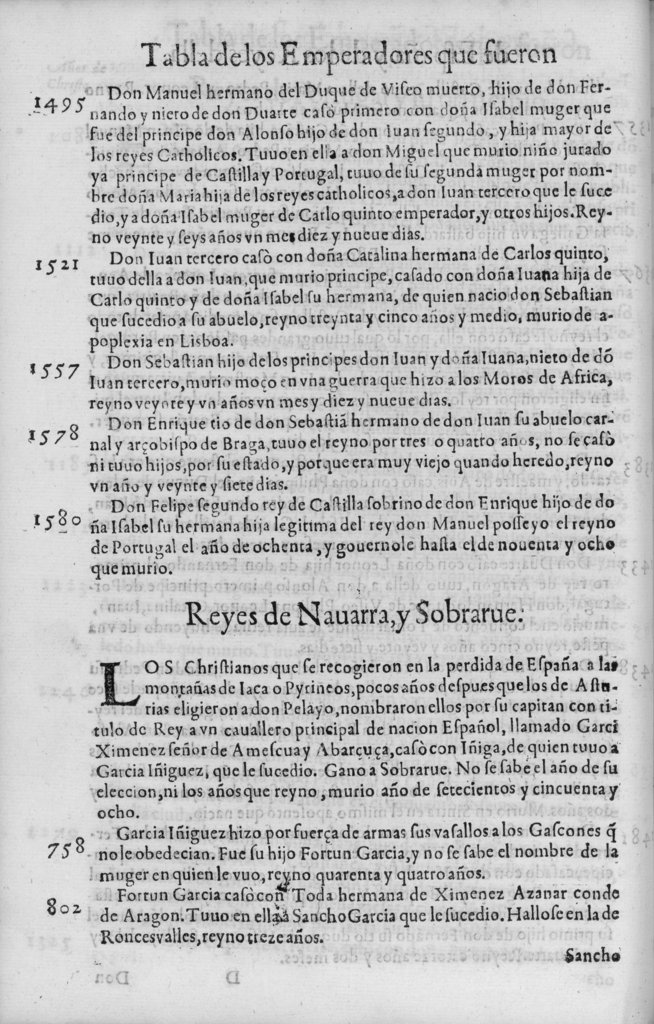 Tabla de los Emperadores que fueron
Don Manuel hermano del Duque de Viseo muerto, hijo de don Fer-
1495 nando y nieto de don Duarte casò primero con doña Isabel muger que
fue del principe don Alonso hijo de don Iuan segundo, y hija mayor de
los reyes Catholicos. Tuuo en ella a don Miguel que murio niño jurado
ya principe de Castilla y Portugal, tuuo de su segunda muger por nom-
bre doña Maria hija de los reyes catholicos, a don Iuan tercero que le suce
dio, y a doña Isabel muger de Carlo quinto emperador, y otros hijos. Rey-
no veynte y seys años vn mes diez y nueue dias.
1521 Don Iuan tercero casò con doña Catalina hermana de Carlos quinto,
tuuo della a don Iuan, que murio principe, casado con doña Iuana hija de
Carlo quinto y de doña Isabel su hermana, de quien nacio don Sebastian
que sucedio a su abuelo, reyno treynta y cinco años y medio, murio de a-
poplexia en Lisboa.
1557 Don Sebastian hijo de los principes don Iuan y doña Iuana, nieto de dõ
Iuan tercero, murio moço en vna guerra que hizo a los Moros de Africa,
reyno veynte y vn años vn mes y diez y nueue dias.
1578 Don Enrique tio de don Sebastiã hermano de don Iuan su abuelo car-
nal y arçobispo de Braga, tuuo el reyno por tres o quatro años, no se casò
ni tuuo hijos, por su estado, y porque era muy viejo quando heredo, reyno
vn año y veynte y siete dias.
1580 Don Felipe segundo rey de Castilla sobrino de don Enrique hijo de do
ña Isabel su hermana hija legitima del rey don Manuel posseyo el reyno
de Portugal el año de ochenta, y gouernole hasta el de nouenta y ocho
que murio.
Reyes de Nauarra, y Sobrarue.
LOS Christianos que se recogieron en la perdida de España a las
montañas de Iaca o Pyrineos, pocos años despues que los de Astu-
rias eligieron a don Pelayo, nombraron ellos por su capitan con ti-
tulo de Rey a vn cauallero principal de nacion Español, llamado Garci
Ximenez señor de Amescua y Abarçuça, casò con Iñiga, de quien tuuo a
Garcia Iñiguez, que le sucedio. Gano a Sobrarue. No se sabe el año de su
eleccion, ni los años que reyno, murio año de setecientos y cincuenta y
ocho.
Garcia Iñiguez hizo por fuerça de armas sus vasallos a los Gascones q̃
758 no le obedecian. Fue su hijo Fortun Garcia, y no se sabe el nombre de la
muger en quien le vuo, reyno quarenta y quatro años.
802 Fortun Garcia casò con Toda hermana de Ximenez Azanar conde
de Aragon. Tuuo en ella à Sancho Garcia que le sucedio. Hallose en la de
Roncesvalles, reyno treze años.
Sancho